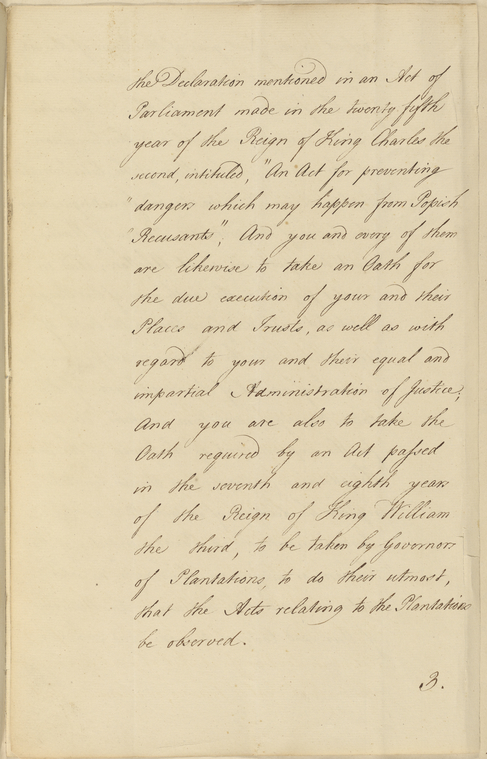 the Declaration mentioned in an Act of
Parliament made in the twenty fifth
year of the Reign of King Charles the
second, intituled, "An Act for preventing
"dangers which may happen from Popish
"Recusants", And you and every of them
are likewise to take an Oath for
the due execution of your and their
Places and Trusts, as well as with
regard to your and their equal and
impartial Administration of Justice;
And you are also to take the
Oath required by an Act passed
in the seventh and eighth years
of the Reign of King William
the third, to be taken by Governors
of Plantations, to do their utmost,
that the Acts relating to the Plantations
be observed.
3.